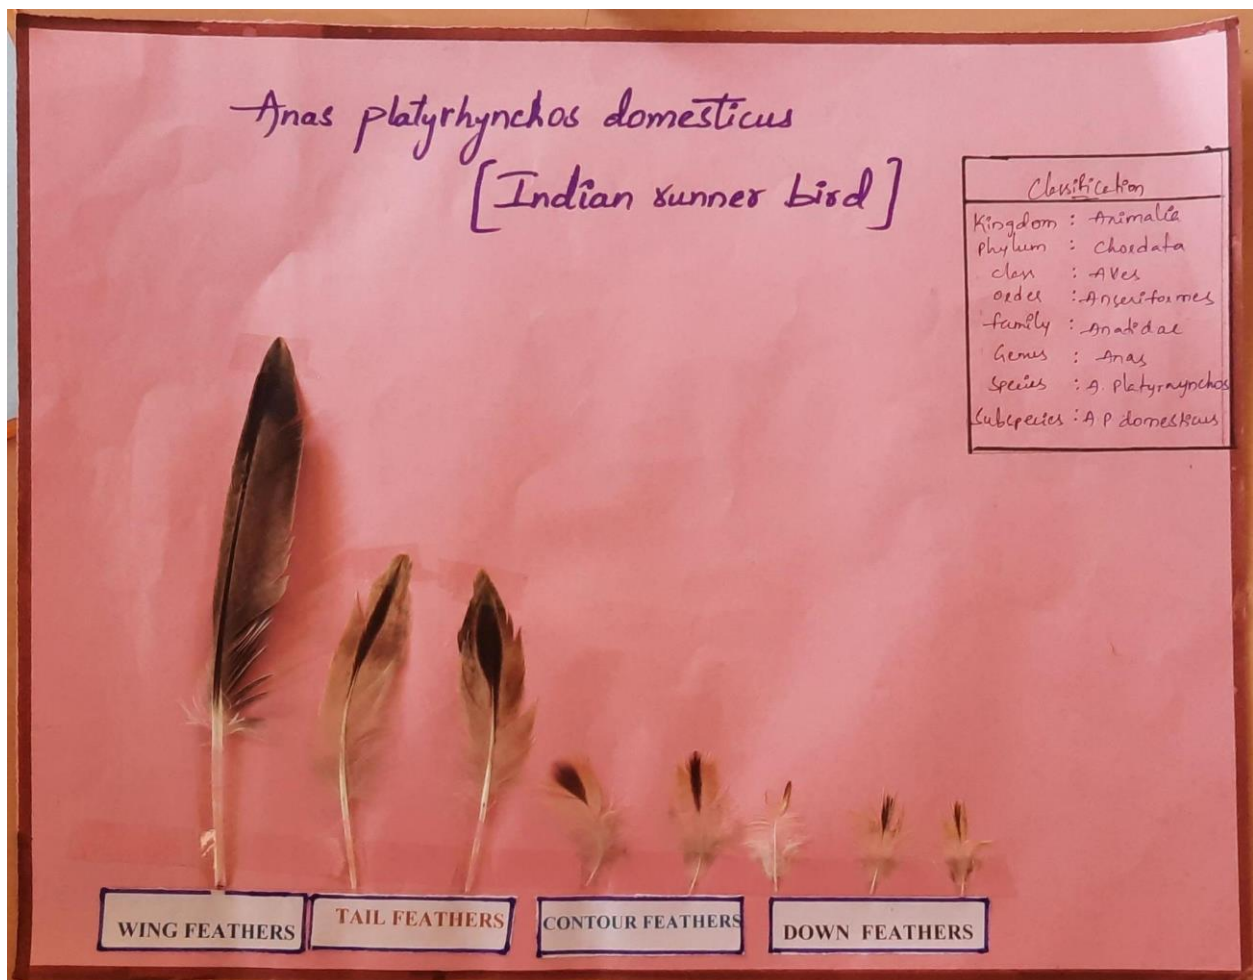 Anas platyrhynchos domesticus
[Indian runner bird]
Classification
Kingdom : Animalia
Phylum : Chordata
class : Aves
order : Anseriformes
family : Anatidae
Genus : Anas
Species : A. Platyrhynchos
Subspecies : A P domesticus
WING FEATHERS
TAIL FEATHERS
CONTOUR FEATHERS
DOWN FEATHERS